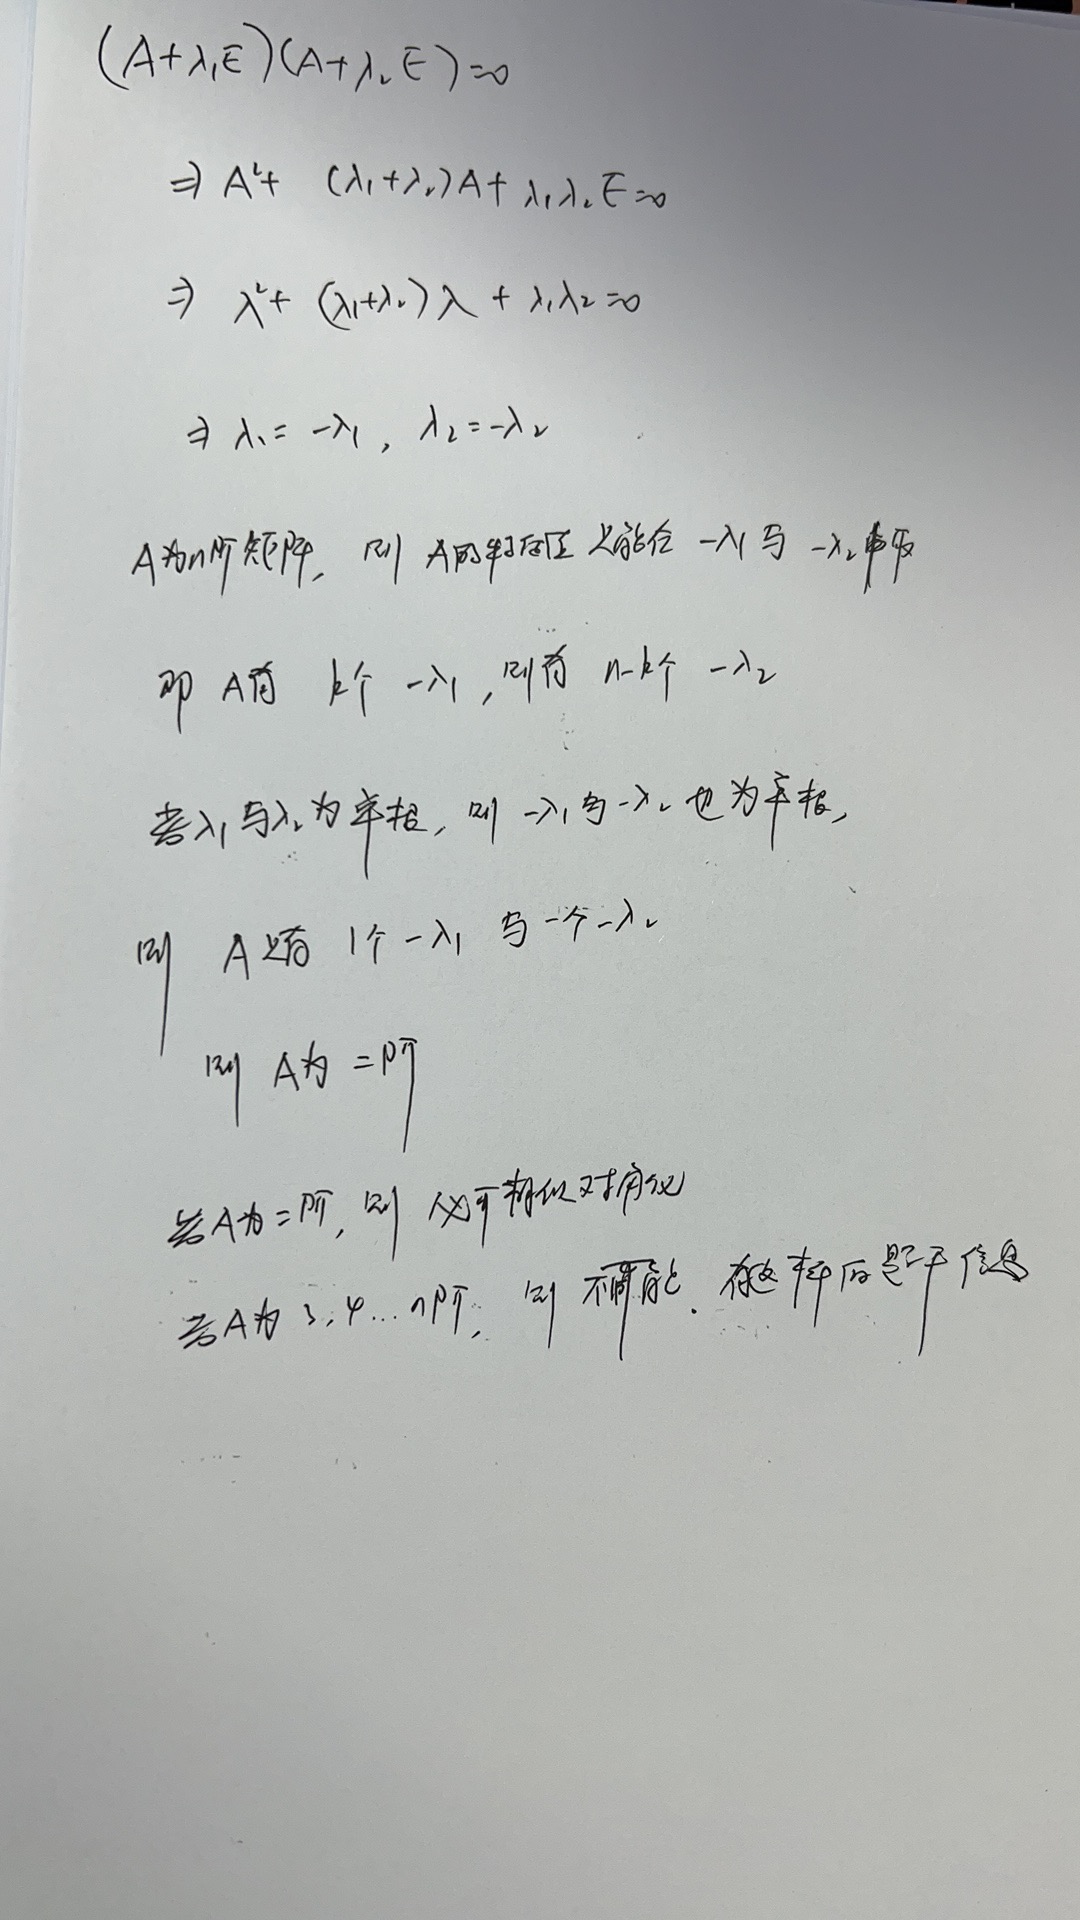 (A+λ₁E)(A+λ₂E)=0
⇒ A²+ (λ₁+λ₂)A+ λ₁λ₂E=0
⇒ λ²+ (λ₁+λ₂)λ + λ₁λ₂=0
⇒ λ₁= -λ₁, λ₂=-λ₂
A为n阶矩阵, 则 A的特征值只能在 -λ₁与 -λ₂中取
即 A有 k个 -λ₁, 则有 n-k个 -λ₂
若λ₁与λ₂为单根, 则 -λ₁与-λ₂也为单根,
则 A只有 1个-λ₁ 与一个-λ₂
则 A为二阶
若A为二阶, 则 必可相似对角化
若A为3,4...n阶, 则 不可能.